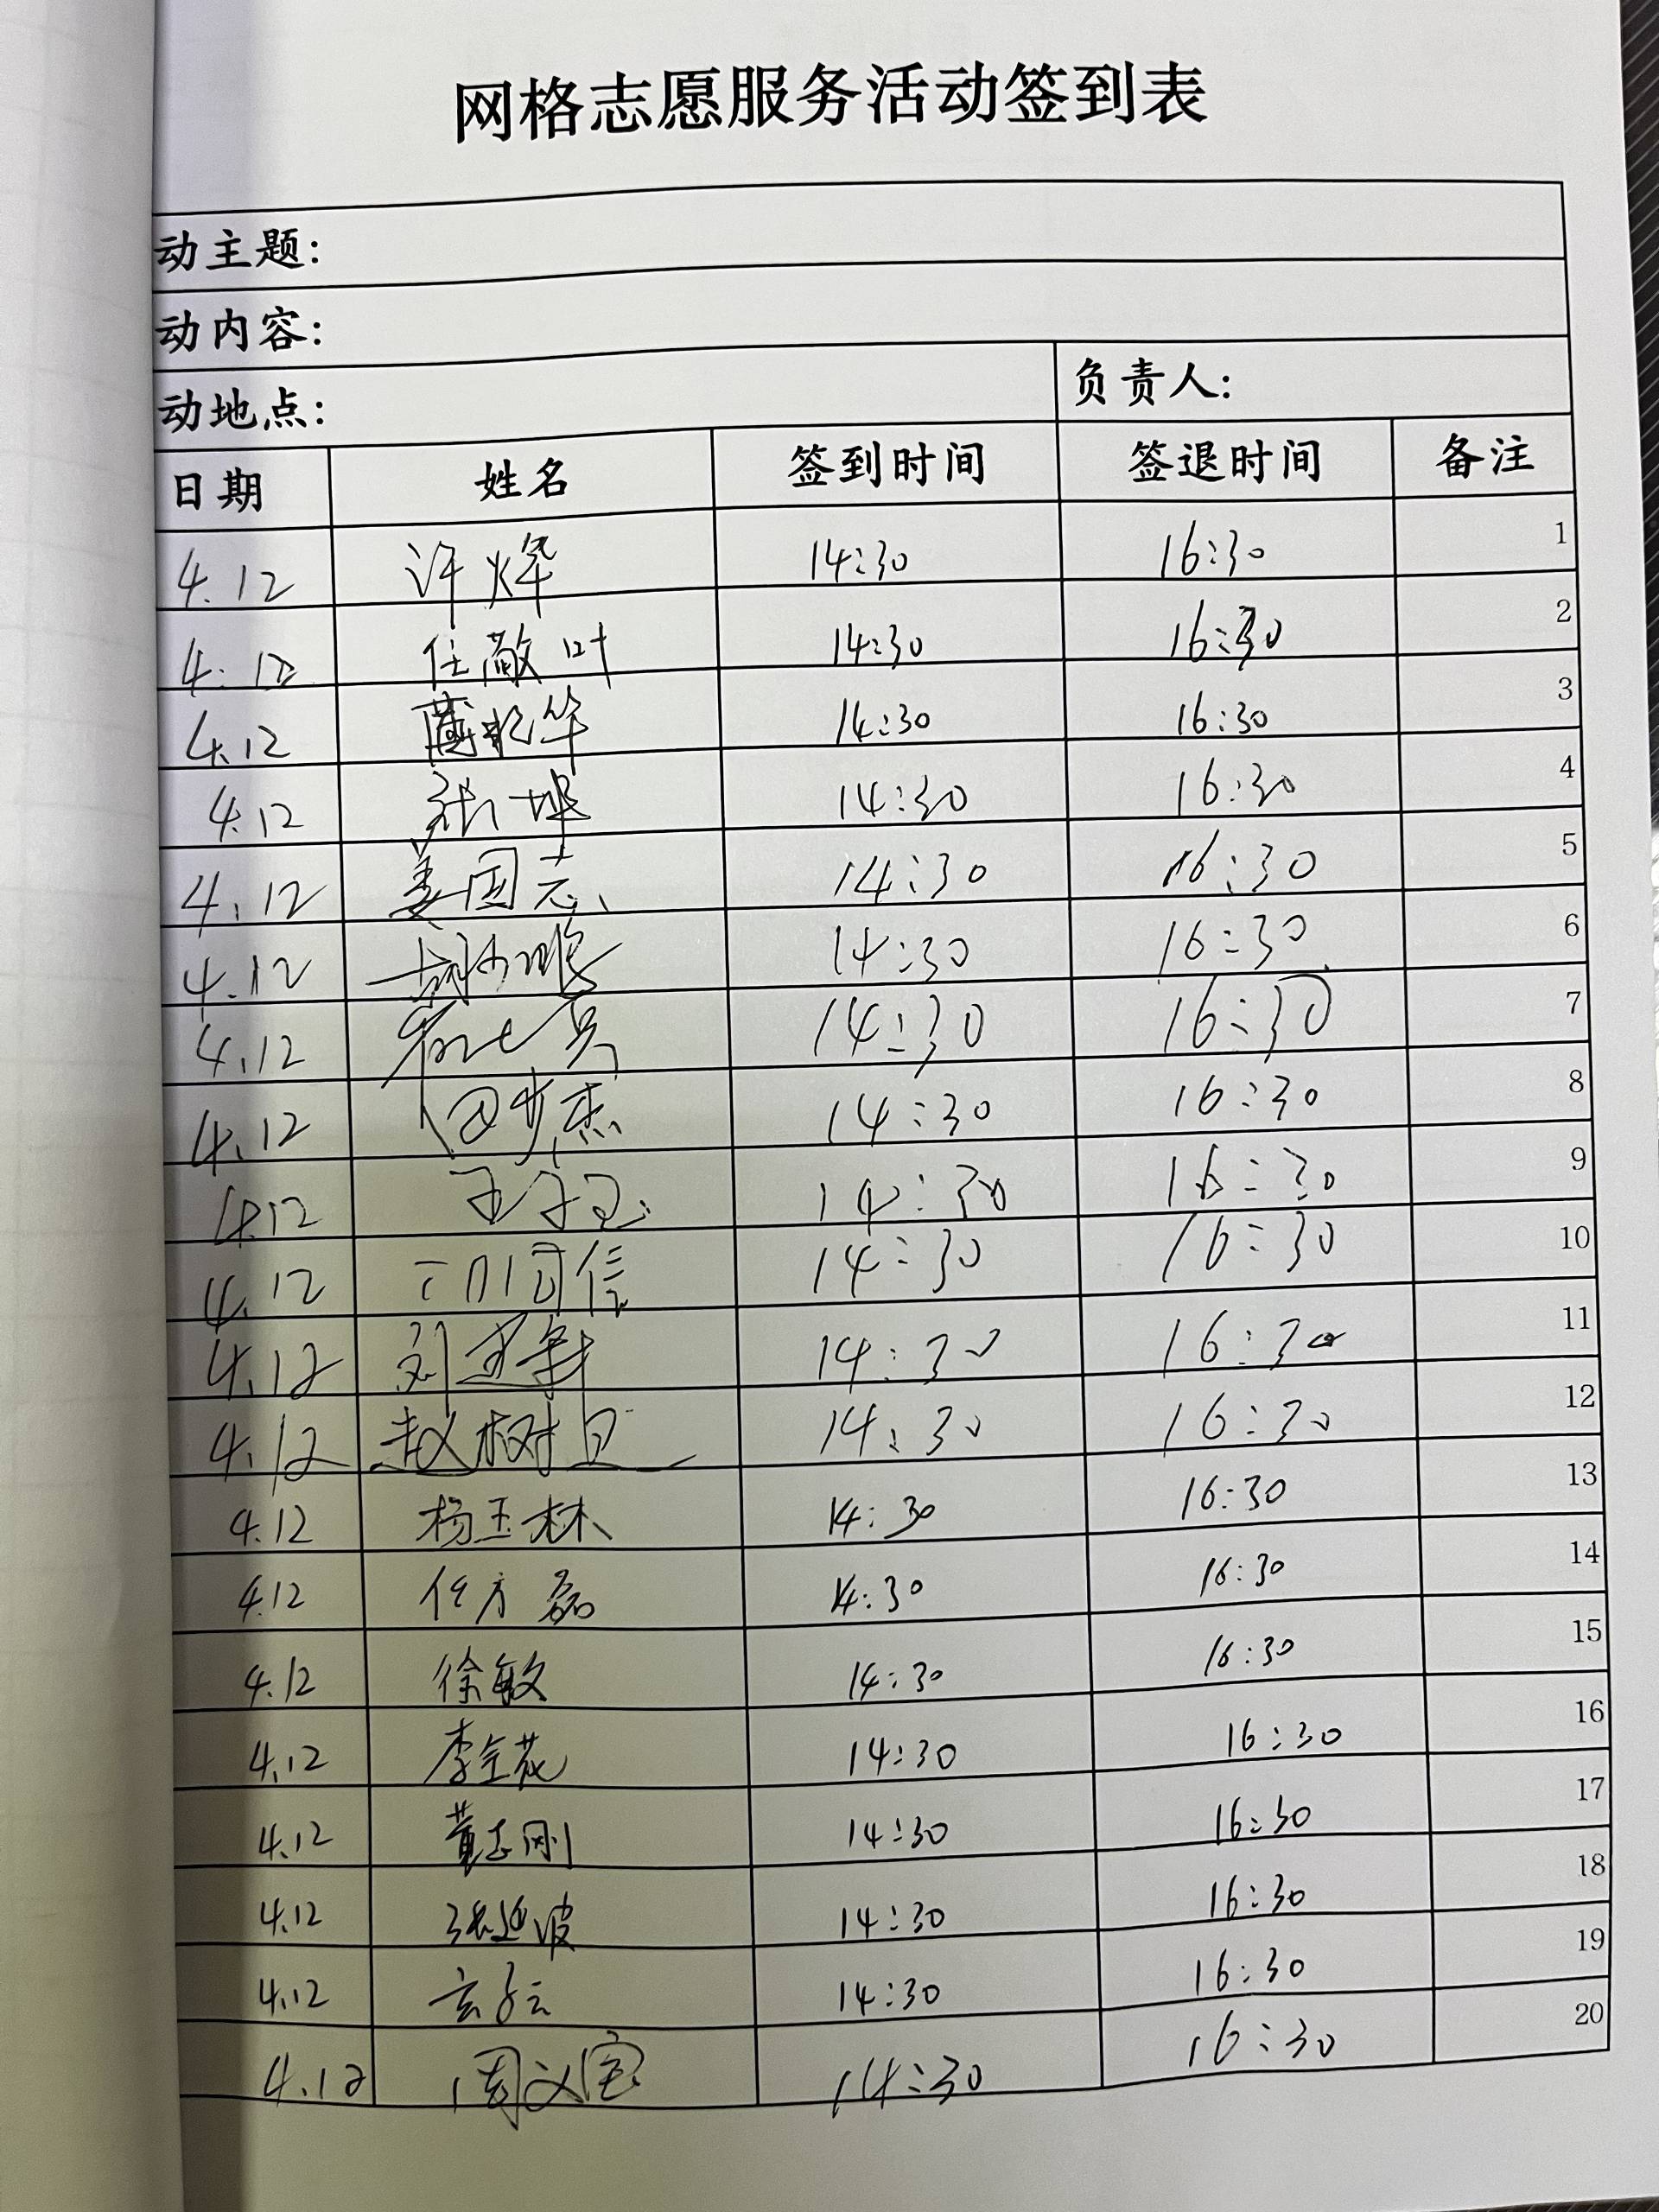 网格志愿服务活动签到表
动主题：
动内容：
动地点： 负责人：
日期 姓名 签到时间 签退时间 备注
4.12 许烨 14:30 16:30 1
4.12 任敞叶 14:30 16:30 2
4.12 华 14:30 16:30 3
4.12 张坤 14:30 16:30 4
4.12 姜国志 14:30 16:30 5
4.12 14:30 16:30 6
4.12 14:30 16:30 7
4.12 田步杰 14:30 16:30 8
4.12 14:30 16:30 9
4.12 信 14:30 16:30 10
4.12 刘建军 14:30 16:30 11
4.12 赵树 14:30 16:30 12
4.12 杨玉林 14:30 16:30 13
4.12 任方磊 14:30 16:30 14
4.12 徐敏 14:30 16:30 15
4.12 李金花 14:30 16:30 16
4.12 董志刚 14:30 16:30 17
4.12 张延波 14:30 16:30 18
4.12 14:30 16:30 19
4.12 周文宝 14:30 16:30 20